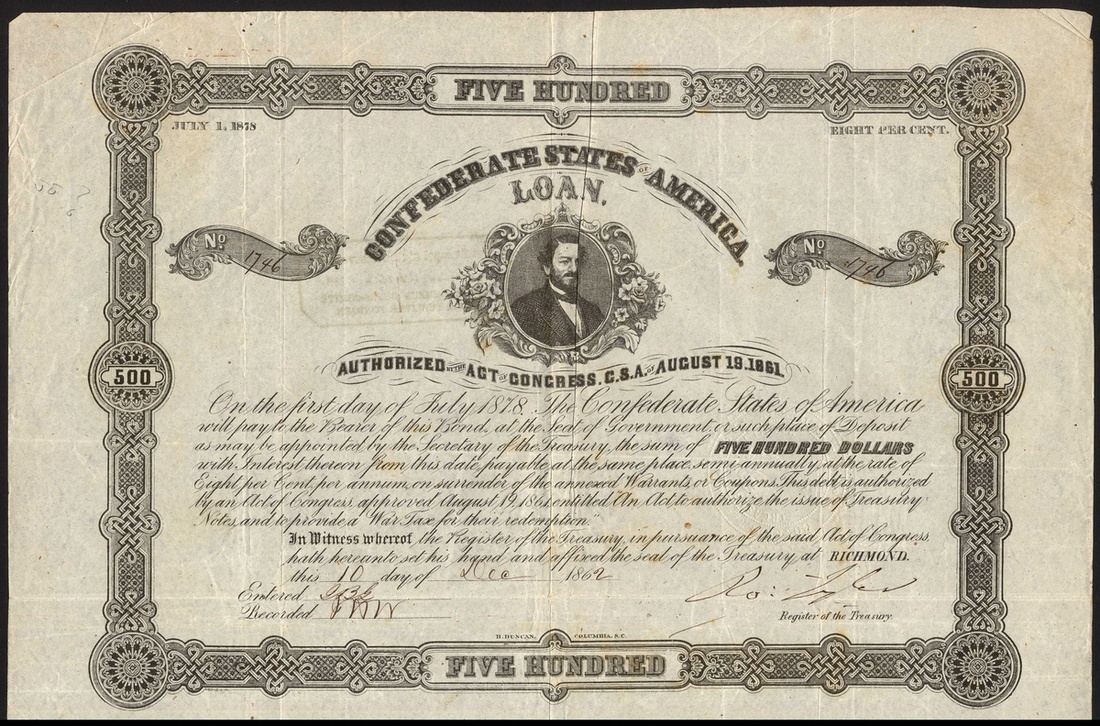 FIVE HUNDRED
JULY 1, 1878
EIGHT PER CENT.
CONFEDERATE STATES OF AMERICA.
LOAN.
No. 1746
No. 1746
AUTHORIZED BY THE ACT OF CONGRESS. C.S.A. OF AUGUST 19.1861.
500
500
On the first day of July 1878. The Confederate States of America
will pay to the Bearer of this Bond, at the Seat of Government, or such place of Deposit
as may be appointed by the Secretary of the Treasury, the sum of FIVE HUNDRED DOLLARS
with Interest thereon from this date payable at the same place, semi-annually, at the rate of
Eight per Cent, per annum, on surrender of the annexed Warrants or Coupons. This debt is authorized
by an Act of Congress, approved August 19, 1861, entitled "An Act to authorize the issue of Treasury
Notes, and to provide a War Tax for their redemption."
In Witness whereof, the Register of the Treasury, in pursuance of the said Act of Congress,
hath hereunto set his hand, and affixed the seal of the Treasury, at RICHMOND.
this 10 day of Dec 1862
Entered
Recorded
Ro: Tyler
Register of the Treasury.
B. DUNCAN, COLUMBIA, S.C.
FIVE HUNDRED